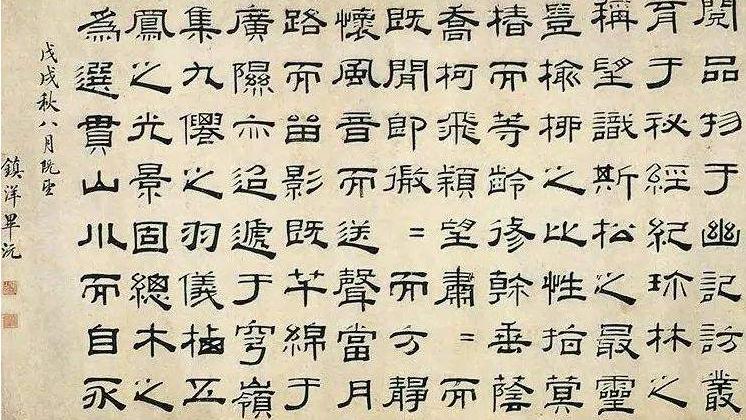 閱品物于幽記訪叢
育于秘經紀珎林之
稱望識斯松之最靈
豈榆桺之比性指蓂
椿而等齡修榦垂蔭
喬柯飛穎望肅=而
既閒即微=而方靜
懷風音而送聲當月
路而畱影既芊綿于
廣隰亦迢遞于穹嶺
集九僊之羽儀栖五
鳳之光景固總木之
為選貫山川而自永
戊戌秋八月既望
鎮洋畢沅